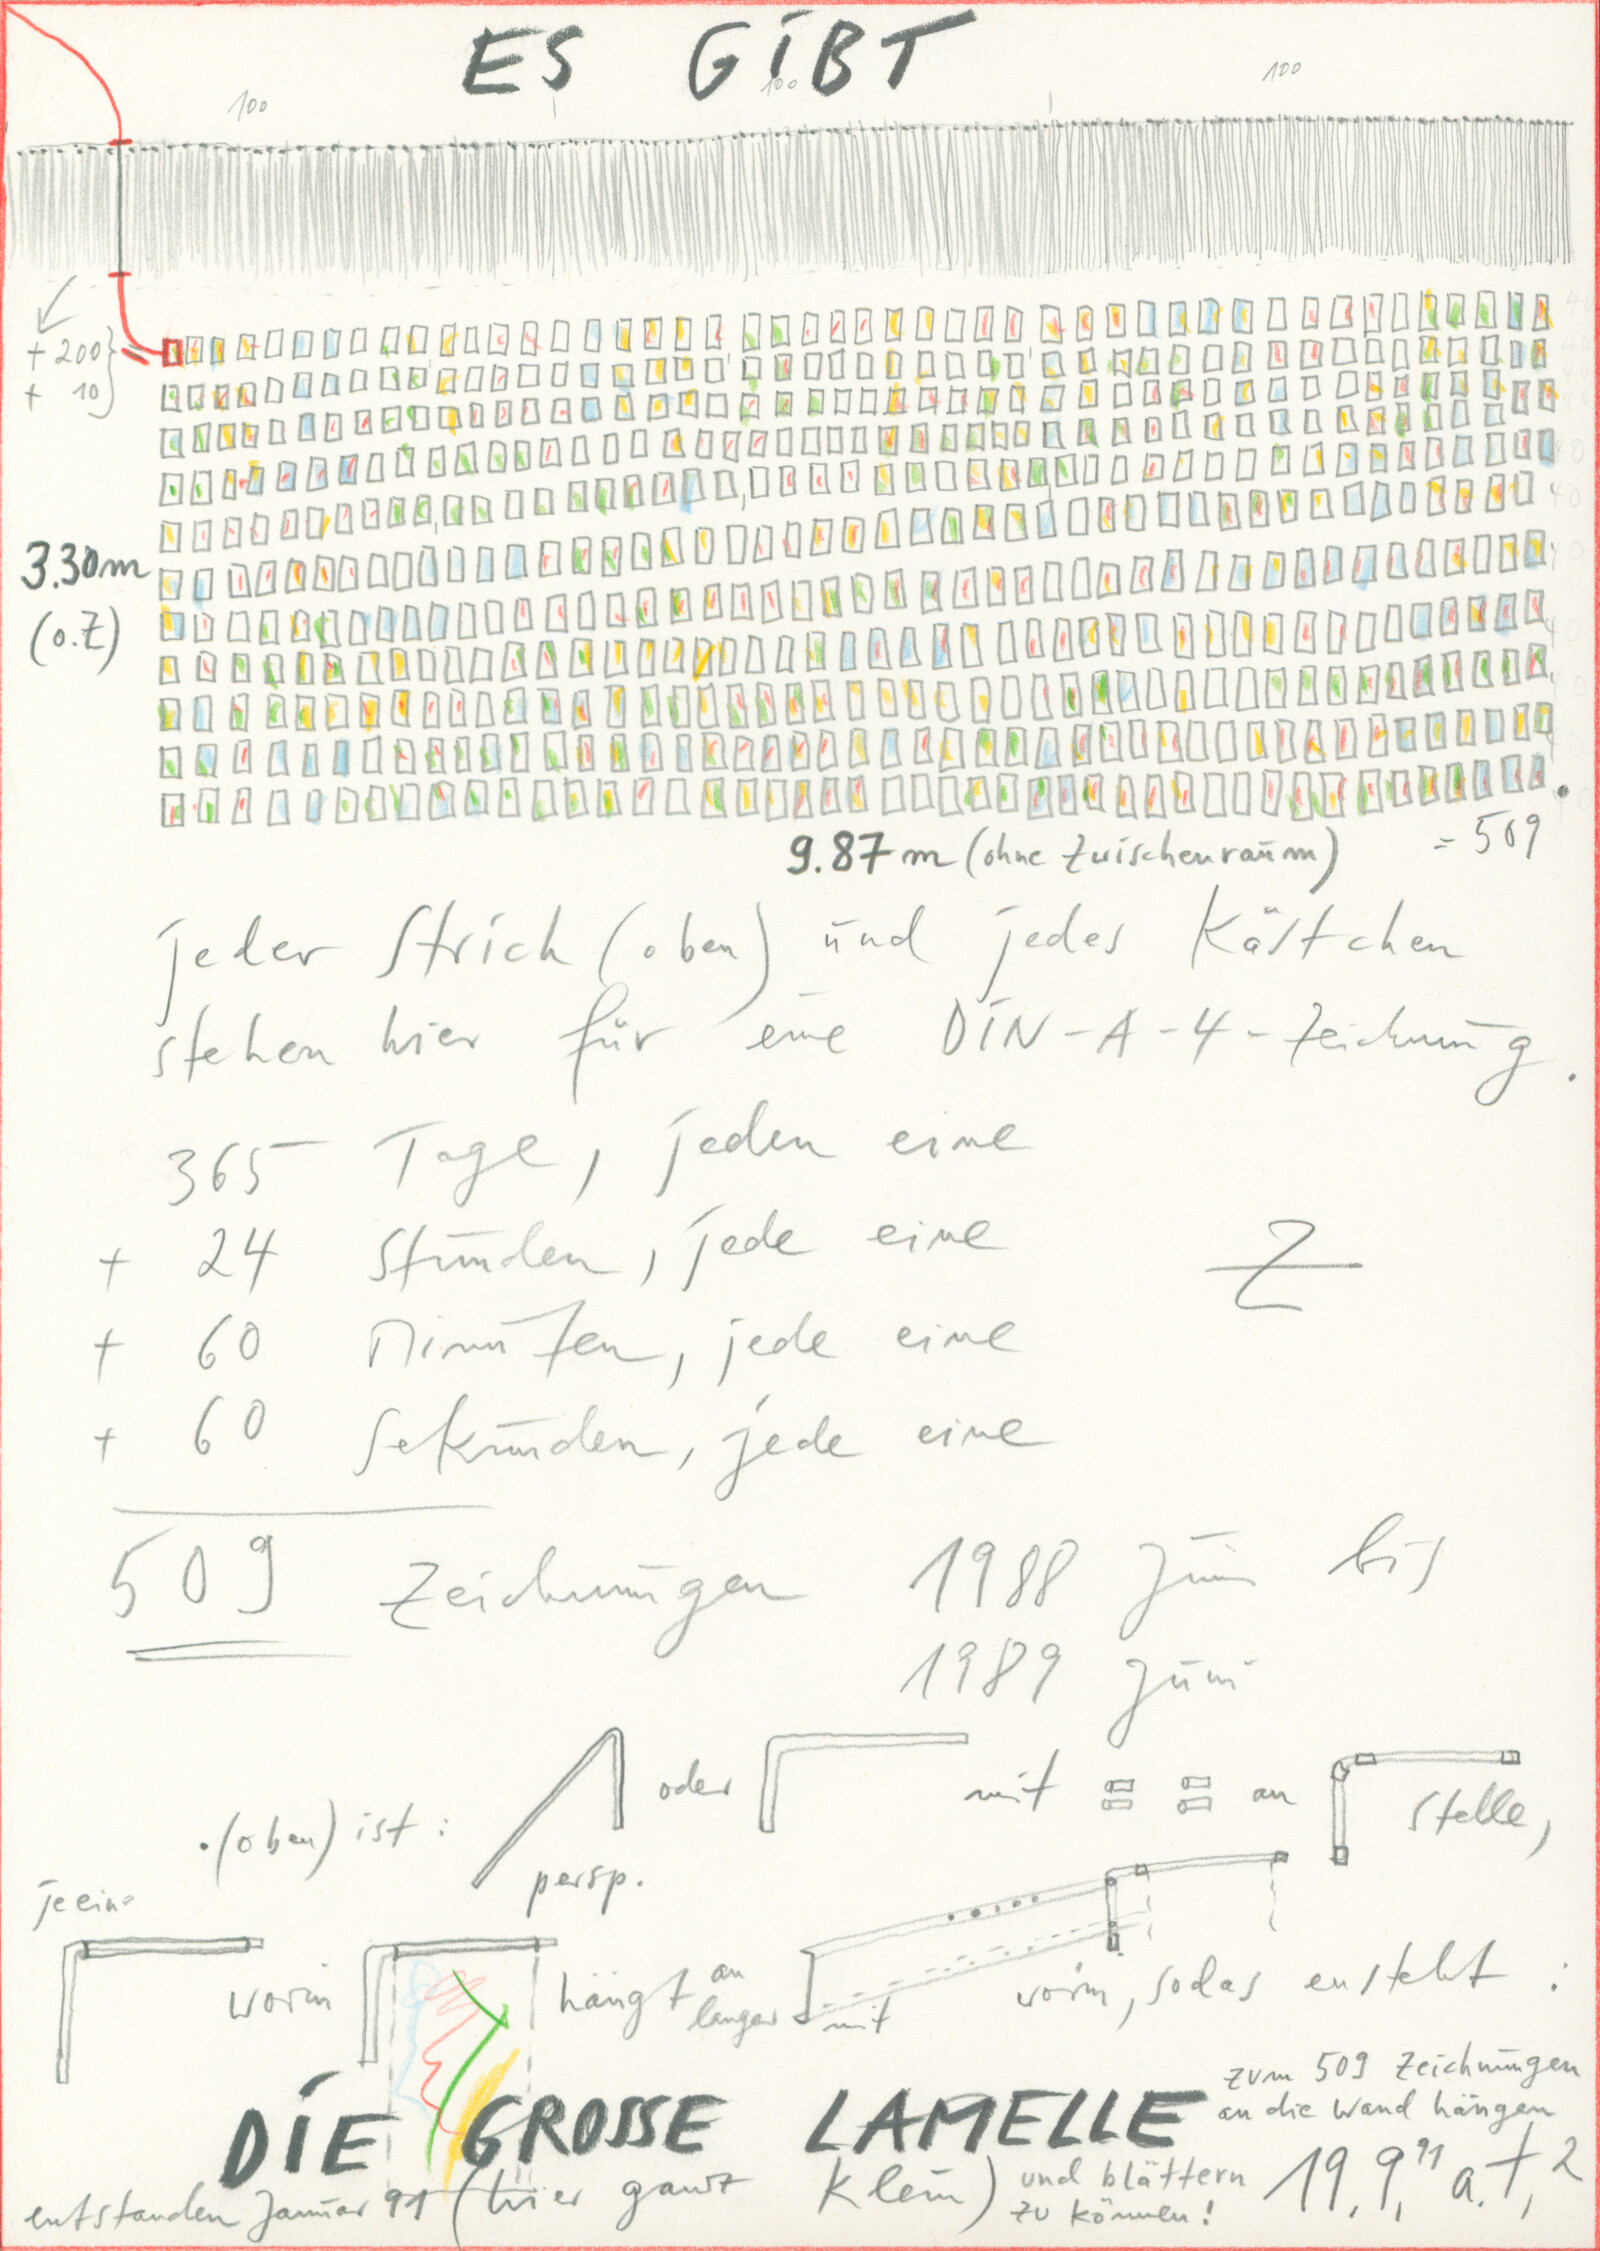 ES GIBT
100 100 100
+ 200
+ 10
3.30m
(o.Z)
9.87 m (ohne Zwischenraum)
= 509
jeder Strich (oben) und jedes Kästchen
stehen hier für eine DIN-A-4-Zeichnung.
365 Tage, jeden eine
+ 24 Stunden, jede eine
Z
+ 60 Minuten, jede eine
+ 60 Sekunden, jede eine
509 Zeichnungen 1988 Juni bis
1989 Juni
.(oben) ist: oder mit an Stelle,
persp.
je ein=
worin hängt an langer mit vorin, sodas ensteht :
zum 509 Zeichnungen
an die Wand hängen
DIE GROSSE LAMELLE
und blättern
zu können!
entstanden Januar 91 (hier ganz klein)
19.9.91 a.t,2